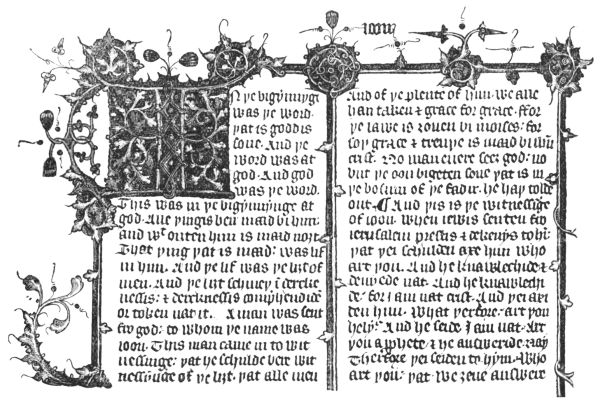 ioon
IN ye bigynnynge
was ye word.
yat is goddis
sone. And ye
word was at
god. And god
was ye word.
This was in ye bigynnynge at
god. Alle yingis ben maad bi him:
and wt outen him is maad noȝt
That ying yat is maad: was lif
in him. And ye lif was ye liȝt of
men. And ye liȝt schiney ī derck
nessis: & dercknessis comprehendide
or token nat it. A man was sent
fro god: to whom ye name was
ioon. This man came in to wit
nessinge: yat he schulde bere wit
nessinge of ye liȝt. yat alle men
And of ye plente of him: we alle
han taken & grace for grace. ffor
ye lawe is ȝouen bi moises: for
soy grace & treuye is maad bi ihū
crist. No man euere seeȝ god: no
but ye oon bigeten sone yat is in
ye bosum of ye fadir. he hay tolde
out. ¶ And yis is ye witnessinge
of ioon. When iewis senten fro
ierusalem prestis & dekenys to hī:
yat yei schulden axe him Who
art you. And he knawlechide &
denyede nat. And he knawlech
ide: for I am nat crist. And yei axi
den him. What yerfore: art you
hely: And he seide. I am nat. Art
you a phete: & he answeride. nay
Therfore yei seiden to hym. Who
art you: yat we ȝeue answere